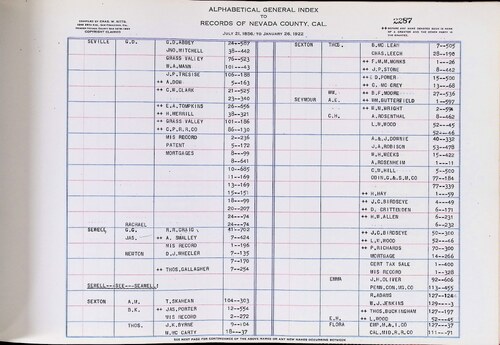 ALPHABETICAL GENERAL INDEX
TO
RECORDS OF NEVADA COUNTY, CAL.
JULY 21, 1856, TO JANUARY 26, 1922
2257
COPYRIGHT CLAIMED
SEVILLE G.D. G.D. ABBEY 24--587
JNO. MITCHELL 38--442
GRASS VALLEY 76--523
W.A. MANN 101--43
J.P. TRESIDE 106--188
++ A. DOW 5--163
++ C.W. CLARK 21--525
23--340
++ E.A. TOMPKINS 26--656
++ H. MERRILL 38--321
++ GRASS VALLEY 101--186
++ C.P.R.R. CO 86--130
MIS RECORD 2--236
PATENT 5--172
MORTGAGES 8--99
8--641
10--605
13--169
13--169
15--151
18--99
20--207
24--74
RACHAEL 24--74
SEWELL G.G. R.R. CRAIG 41--702
JAS. ++ A. SMALLEY 7--424
MIS RECORD 1--196
NEWTON D.J. WHEELER 7--135
7--170
++ THOS. GALLAGHER 7--254
SEWELL---SEE---SEAWELL
SEXTON A.H. T. SKAHEAN 104--303
B.K. ++ JAS. PORTER 12--554
MIS RECORD 2--272
THOS. J.K. BYRNE 9--104
W. MC CARTY 18--37
SEXTON THOS. B. MC LEAN 7--505
CHAS. LEECH 28--190
++ F.M.M. MORKS 1--26
++ J.P. STONE 8--442
++ D. FORER 15--500
++ C. MC GREY 13--68
WM. ++ B.F. MOORE 27--536
SEYMOUR A.E. ++ WM. BUTTERFIELD 1--597
++ N.M. WRIGHT 2--594
C.H. A. ROSENTHAL 8--462
L.N. WOOD 52--45
52--46
A.& J. DOWNIE 40--332
J.A. ROBISON 53--478
W.H. WEEKS 15--422
A. ROSENHEIM 1---11
C.N. HILL 5--500
COIN, G.& S.M. CO 77--184
77--339
++ H. HAY 1--59
++ J.C. BIRDSEYE 4---49
++ D. CRITTENDEN 6--171
++ W.B. ALLEN 6--231
6--232
++ J.C. BIRDSEYE 50--300
++ L.N. WOOD 52--46
++ P. RICHARDS 70--300
MORTGAGE 14--266
CERT TAX SALE 1--400
MIS RECORD 1--328
EMMA J.H. OLIVER 92--606
PENN. CON. UG. CO 113--455
R. ADAMS 127--124
W.J. JENKINS 129---3
++ THOS. BUCKINGHAM 127--197
E.H. ++ L. WOOD 52--45
FLORA EMP. M.& I. CO 127--37
CAL. MID. R.R. CO 111--71